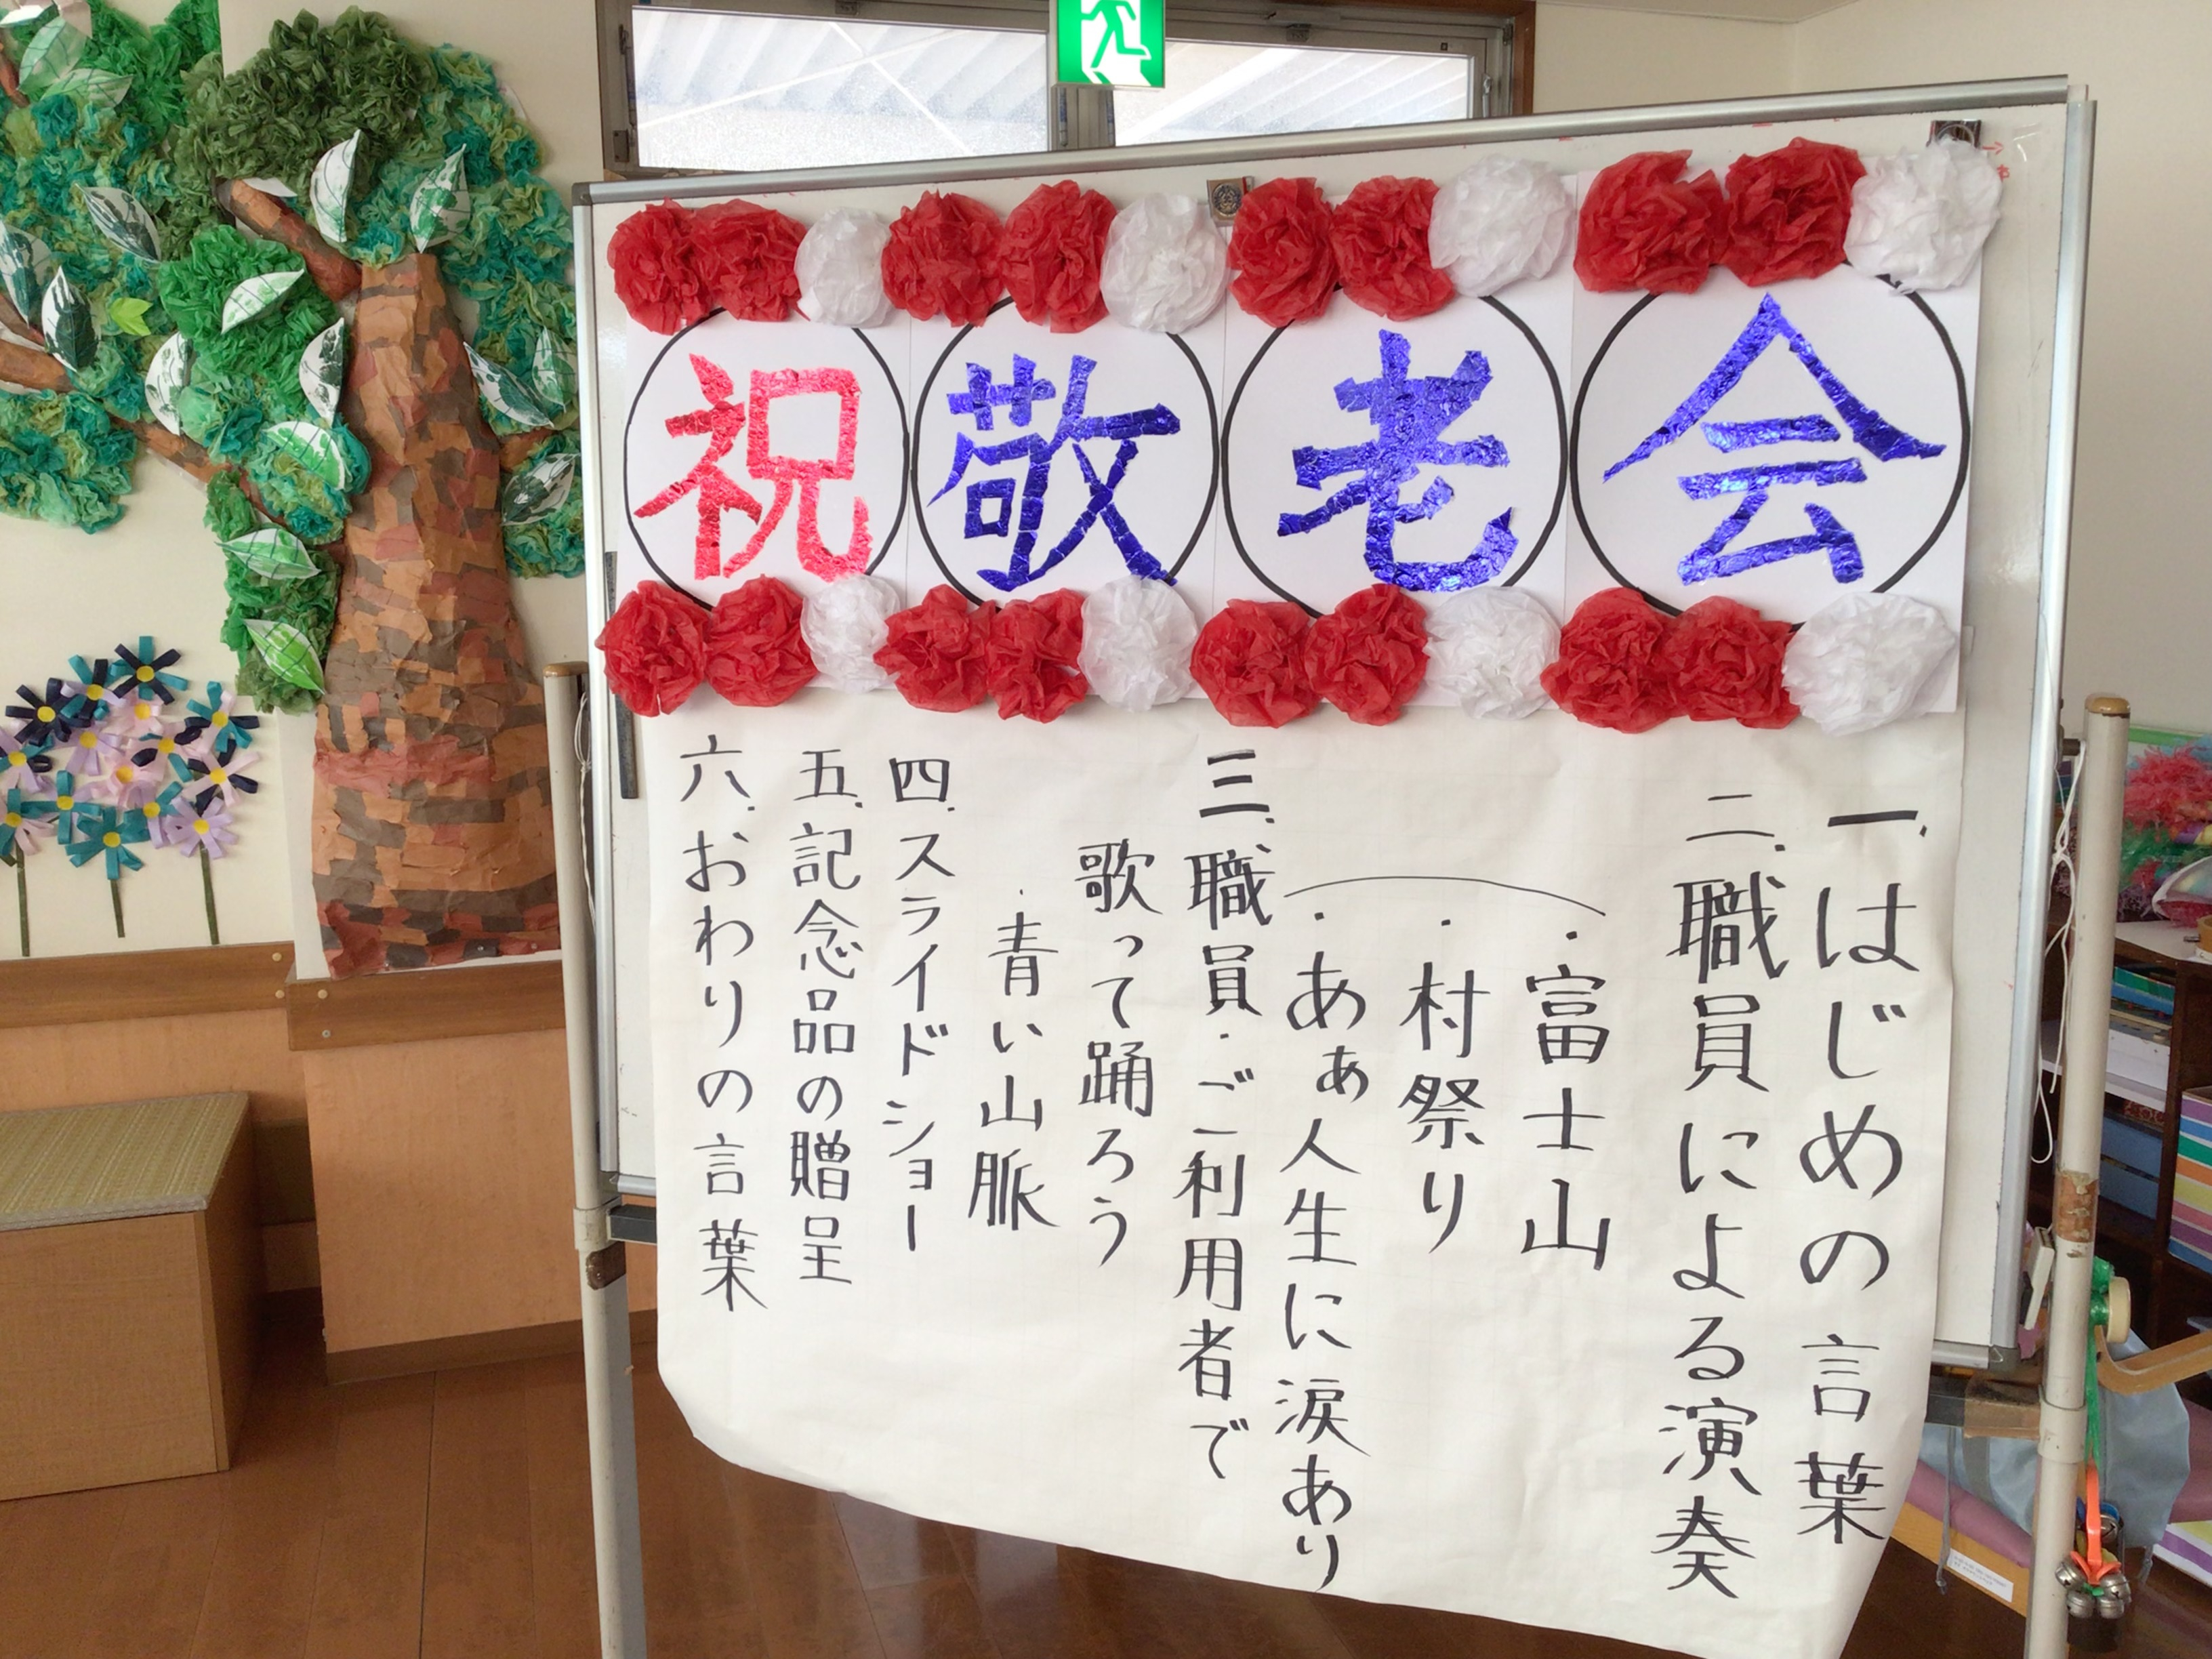 祝敬老会
一、はじめの言葉
二、職員による演奏
・富士山
・村祭り
・あぁ人生に涙あり
三、職員・ご利用者で
歌って踊ろう
・青い山脈
四、スライドショー
五、記念品の贈呈
六、おわりの言葉